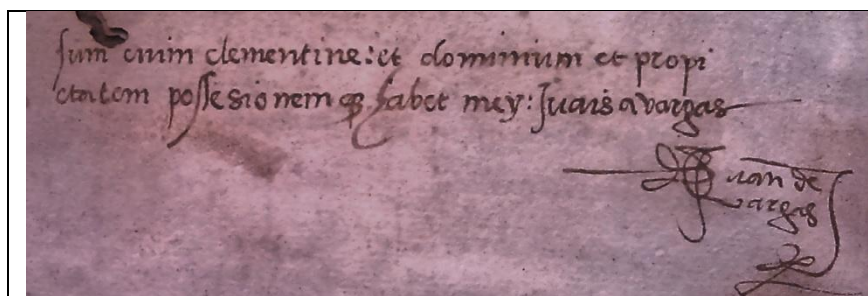 sum enim clementine: et dominium et propi
etatem possesionem qȝ habet mey: Juais a vargas
Juan de
vargas